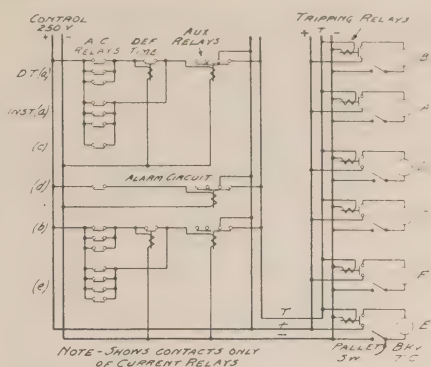 CONTROL
250 V
+ -
A C
RELAYS
DEF
TIME
AUX
RELAYS
TRIPPING RELAYS
+ T -
D T (a)
INST (a)
(c)
(d)
ALARM CIRCUIT
(b)
(e)
B
A
F
E
T
+
-
PALLET
SW
8 KV
T C
NOTE - SHOWS CONTACTS ONLY
OF CURRENT RELAYS